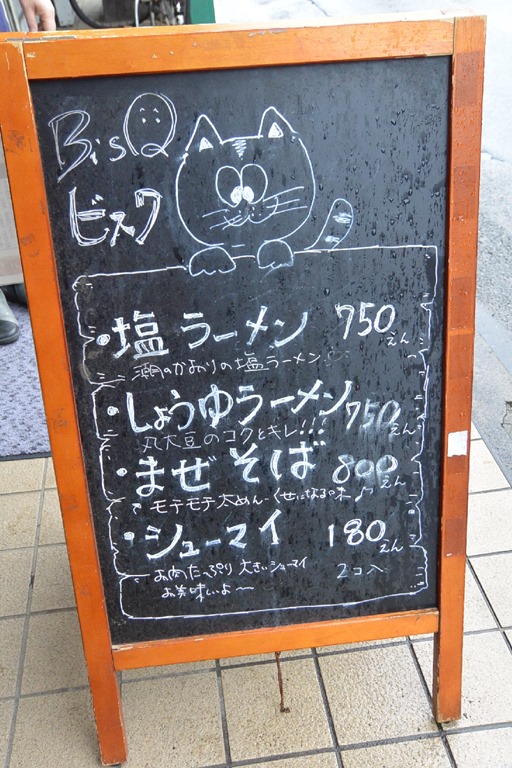 BisQ
ビスク
・塩ラーメン 750えん
潮のかおりの塩ラーメン
・しょうゆラーメン 750えん
丸大豆のコクとキレ!!!
・まぜそば 800えん
モテモテ太めん くせになる味♪
・シューマイ 180えん
お肉たっぷり 大きいシューマイ 2コ入
お美味いよ〜